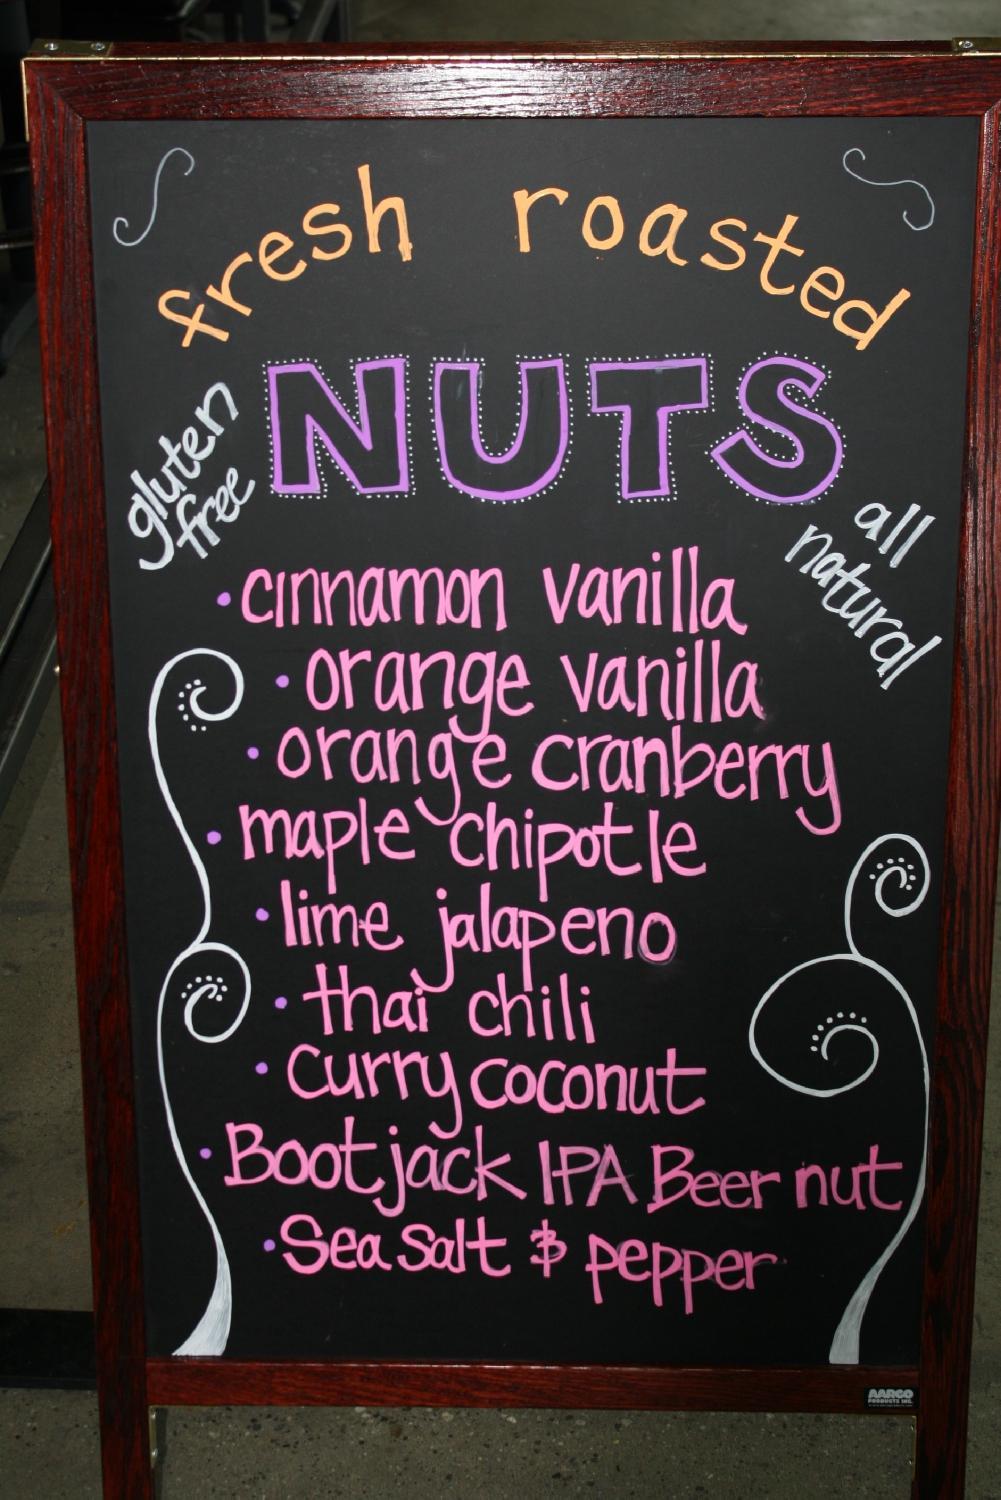 fresh roasted
NUTS
gluten
free
all
natural
· cinnamon vanilla
· orange vanilla
· orange cranberry
· maple chipotle
· lime jalapeno
· thai chili
· curry coconut
· Bootjack IPA Beer nut
· Sea salt & pepper
AARCO
PRODUCTS INC.